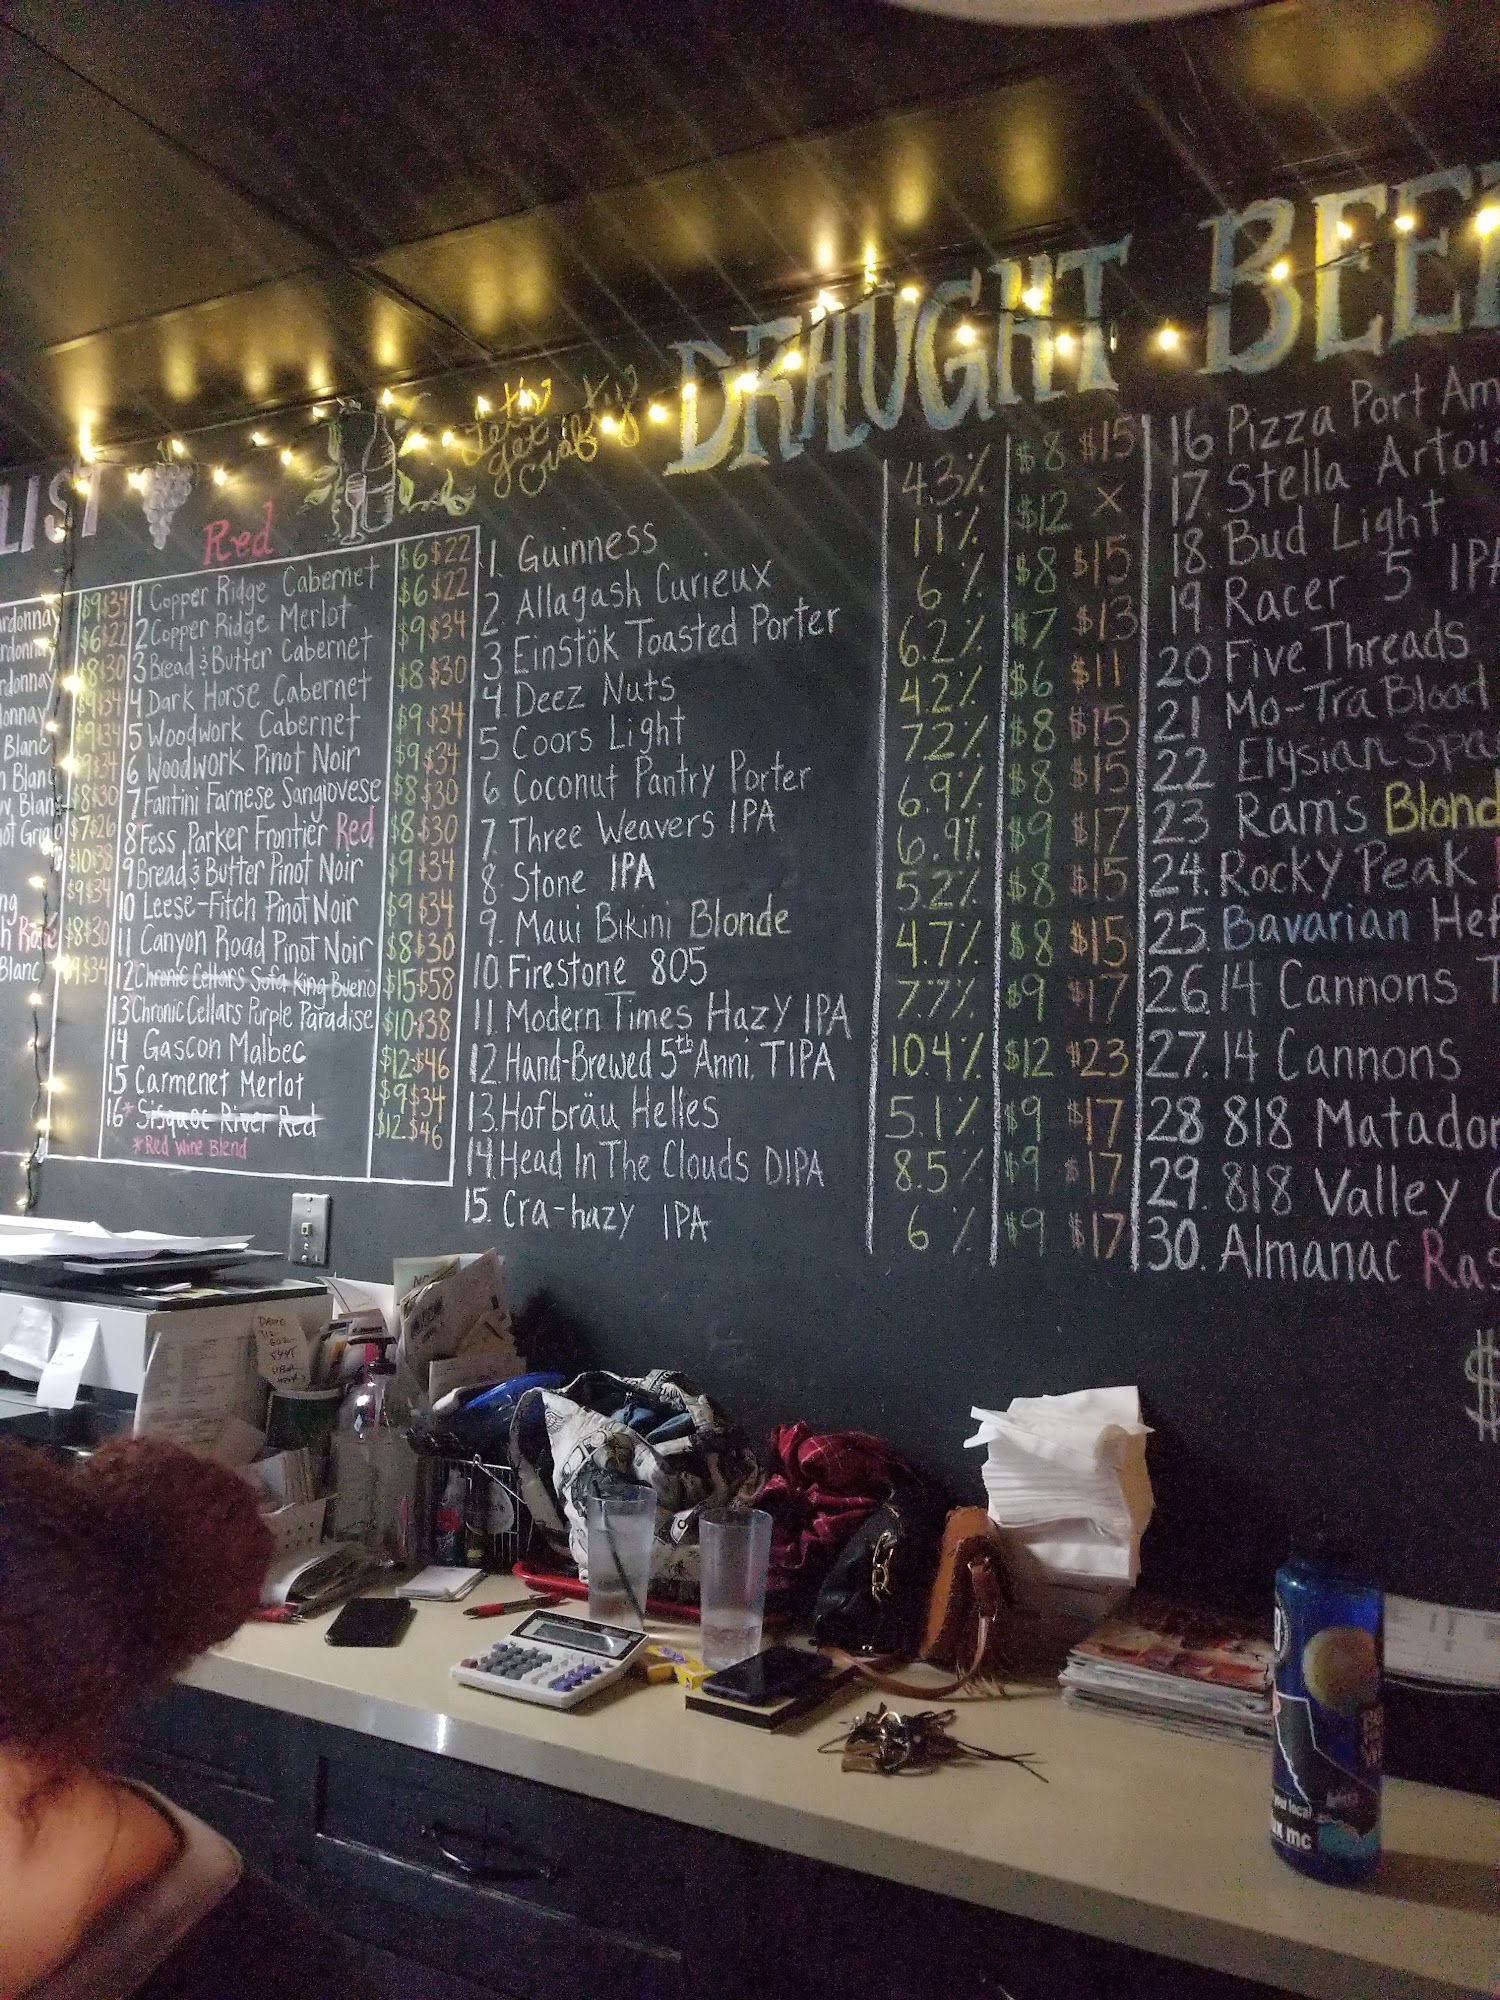 LIST
Red
Let's get crabby
DRAUGHT BEER
ardonnay $9 $34
rdonnay $6 $22
rdonnay $8 $30
donnay $9 $34
Blanc $9 $34
n Blanc $9 $34
Blanc $8 $30
ot Grigio $7 $26
$10 $38
ng $9 $34
h Rosé $8 $30
Blanc $9 $34
1 Copper Ridge Cabernet $6 $22
2 Copper Ridge Merlot $6 $22
3 Bread & Butter Cabernet $9 $34
4 Dark Horse Cabernet $8 $30
5 Woodwork Cabernet $9 $34
6 Woodwork Pinot Noir $9 $34
7 Fantini Farnese Sangiovese $8 $30
8 Fess Parker Frontier Red $8 $30
9 Bread & Butter Pinot Noir $9 $34
10 Leese-Fitch Pinot Noir $9 $34
11 Canyon Road Pinot Noir $8 $30
12 Chronic Cellars Sofa King Bueno $15 $58
13 Chronic Cellars Purple Paradise $10 $38
14 Gascon Malbec $12 $46
15 Carmenet Merlot $9 $34
16* Sisquoc River Red $12 $46
*Red Wine Blend
1. Guinness 4.3% $8 $15
2. Allagash Curieux 11% $12 X
3 Einstök Toasted Porter 6% $8 $15
4. Deez Nuts 6.2% $7 $13
5 Coors Light 4.2% $6 $11
6. Coconut Pantry Porter 7.2% $8 $15
7. Three Weavers IPA 6.9% $8 $15
8. Stone IPA 6.9% $9 $17
9. Maui Bikini Blonde 5.2% $8 $15
10. Firestone 805 4.7% $8 $15
11. Modern Times Hazy IPA 7.7% $9 $17
12. Hand-Brewed 5th Anni. TIPA 10.4% $12 $23
13. Hofbräu Helles 5.1% $9 $17
14. Head In The Clouds DIPA 8.5% $9 $17
15. Cra-hazy IPA 6% $9 $17
16 Pizza Port Am
17. Stella Artois
18. Bud Light
19. Racer 5 IPA
20 Five Threads
21 Mo-Tra Blood
22 Elysian Spa
23 Ram's Blond
24. Rocky Peak
25. Bavarian Hef
26. 14 Cannons T
27. 14 Cannons
28 818 Matador
29. 818 Valley
30. Almanac Ras
$
your local
ux mc